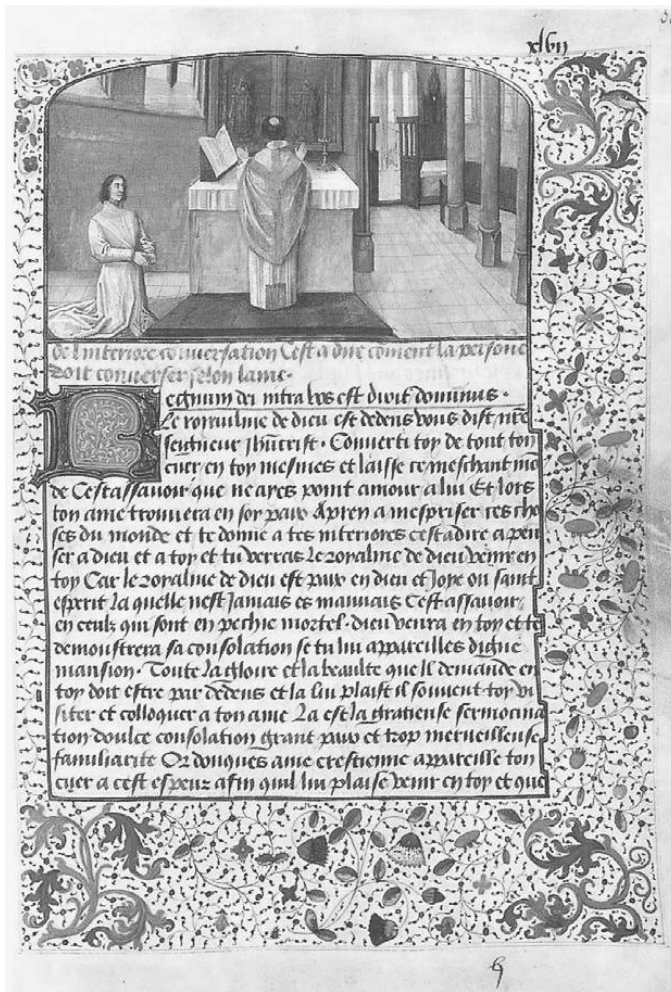 xlvii
de linteriore conversation Cest a dire coment la persone
doit converser selon lame.
Regnum dei intra vos est dicit dominus.
Le royaulme de dieu est dedens vous dist nre
seigneur ihucrist. Converti toy de tout ton
cuer en toy mesmes et laisse ce meschant mo
de Cest assavoir que ne ayes point amour a lui Et lors
ton ame trouvera en soy paix Apren a mespriser ces cho
ses du monde et te donne a tes interiores cest a dire a pen
ser a dieu et a toy et tu verras le royalme de dieu venir en
toy Car le royalme de dieu est paix en dieu et Joye ou saint
esperit la quelle nest Jamais es mauvais Cest assavoir
en ceulx qui sont en pechie mortel. dieu venra en toy et te
demoustrera sa consolation se tu lui appareilles digne
mansion. Toute la gloire et la beaulte que Il demande en
toy doit estre par dedens et la lui plaist il souvent toy vi
siter et colloquer a ton ame La est la gratieuse sermocina
tion doulce consolation grant paix et trop merveilleuse
familiarite Or doncques ame crestienne appareille ton
cuer a cest espeux afin quil lui plaise venir en toy et que